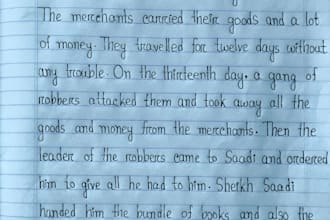 The merchants carried their goods and a lot
of money. They travelled for twelve days without
any trouble. On the thirteenth day, a gang of
robbers attacked them and took away all the
goods and money from the merchants. Then the
leader of the robbers came to Saadi and ordered
him to give all he had to him. Sheikh Saadi
handed him the bundle of books and also the